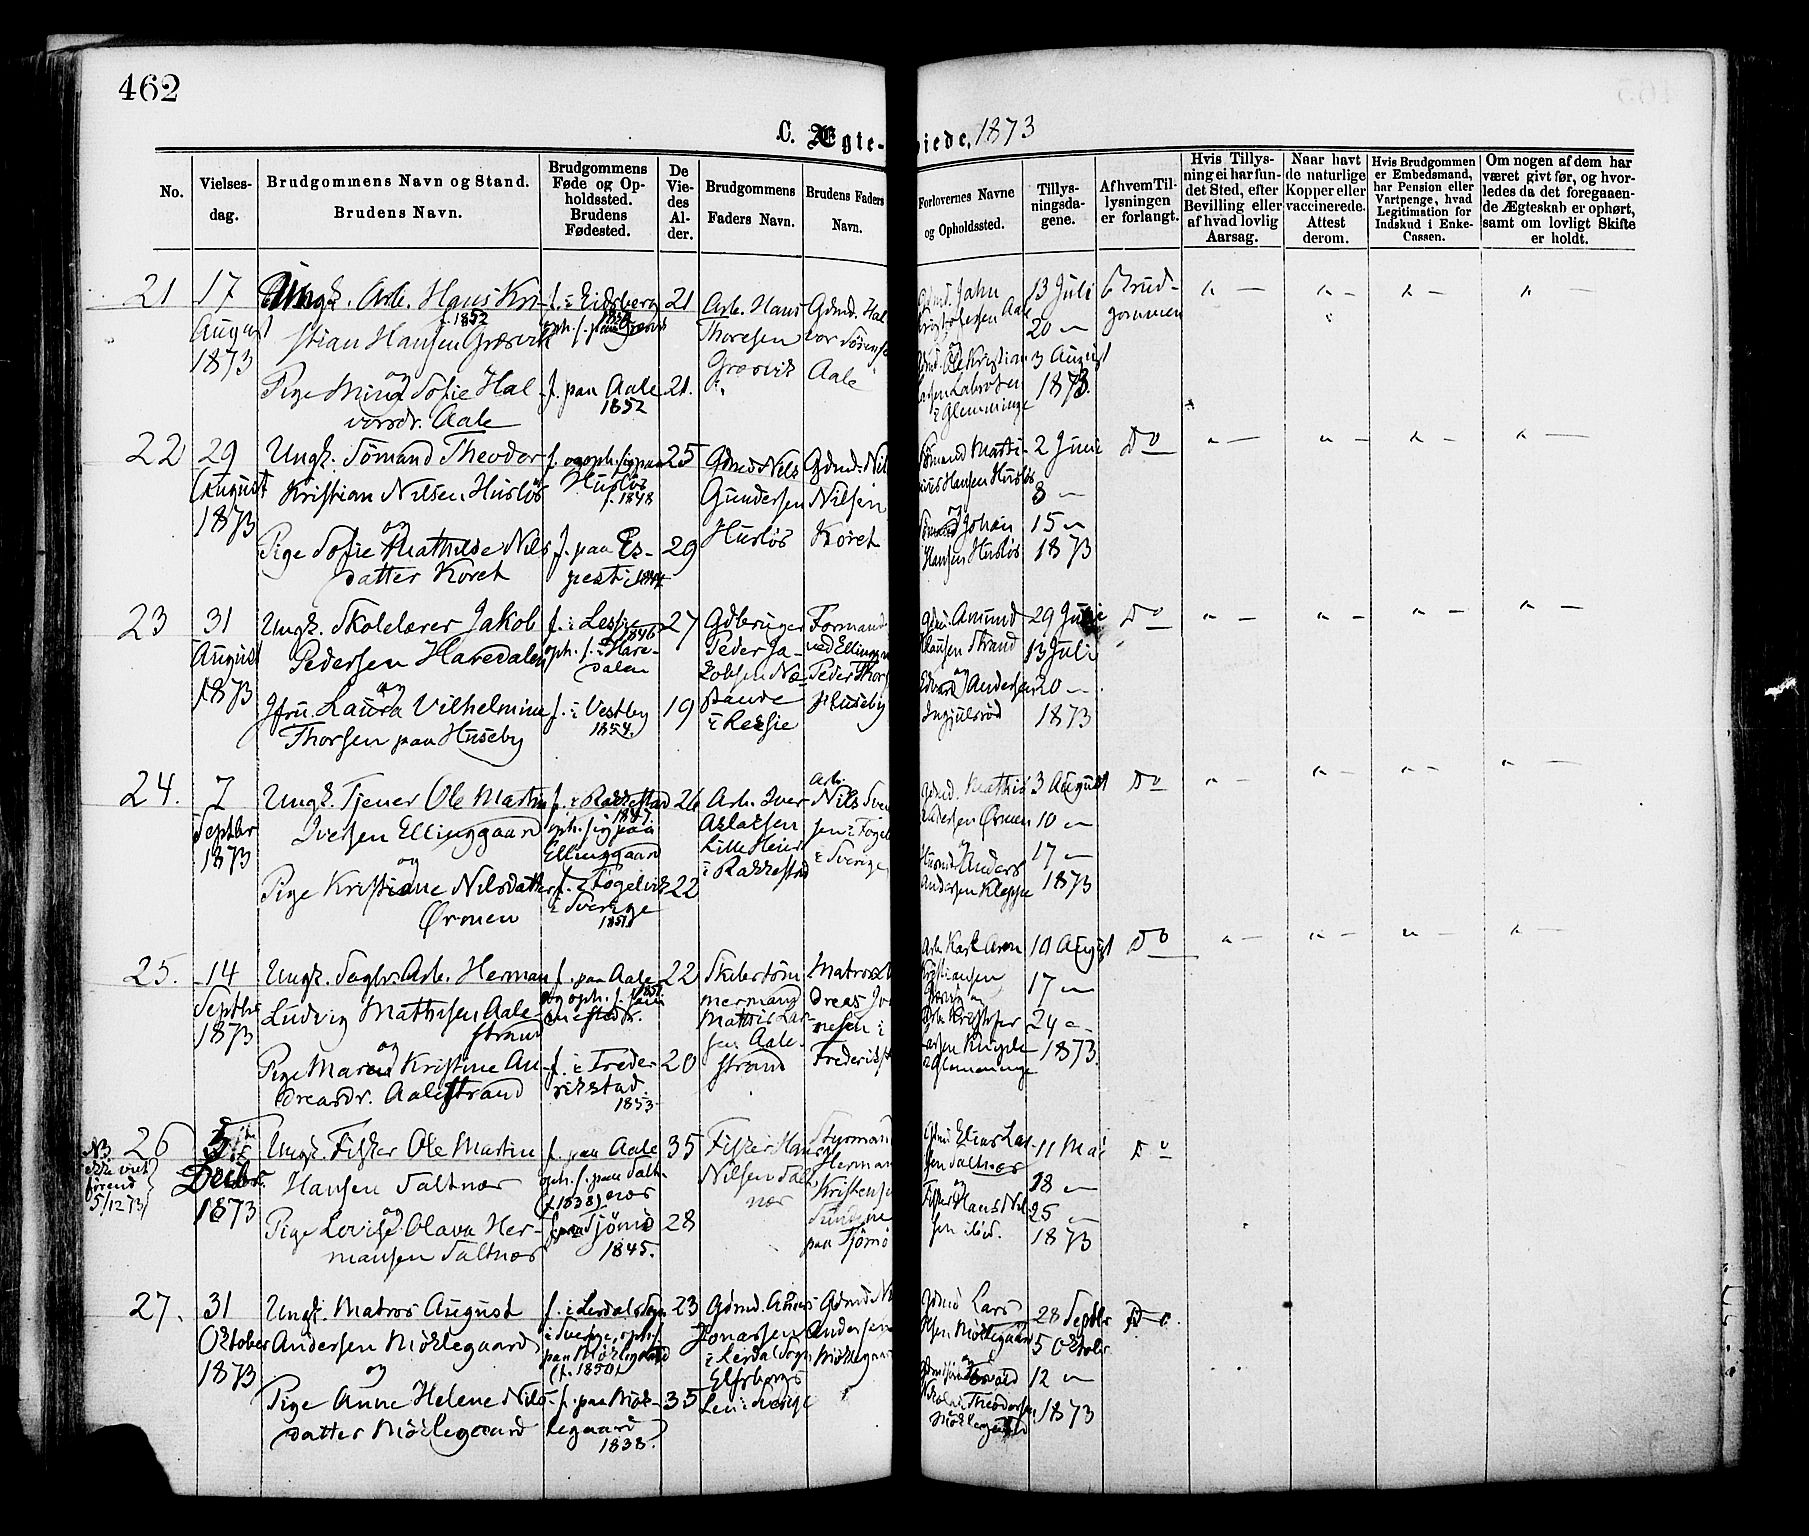 462
C. Ægte-viede, 1873
No.
Vielses-
dag.
Brudgommens Navn og Stand.
Brudens Navn.
Brudgommens
Føde og Op-
holdssted.
Brudens
Fødested.
De
Vie-
des
Al-
der.
Brudgommens
Faders Navn.
Brudens Faders
Navn.
Forlovernes Navne
og Opholdssted.
Tillys-
ningsda-
gene.
Af hvem Til-
lysningen
er forlangt.
Hvis Tillys-
ning ei har fun-
det Sted, efter
Bevilling eller
af hvad lovlig
Aarsag.
Naar havt
de naturlige
Kopper eller
vaccinerede.
Attest
derom.
Hvis Brudgommen
er Embedsmand,
har Pension eller
Vartpenge, hvad
Legitimation for
Indskud i Enke-
Cassen.
Om nogen af dem har
været givt før, og hvor-
ledes da det foregaaen-
de Ægteskab er ophørt,
samt om lovligt Skifte
er holdt.
21
17
August
1873
Ungk. Arb. Hans Kri-
f. 1852
stian Hansen Græsvik
og
Pige Mina Sofie Hal
vorsdr. Aale
f. i Eidsberg
oph. s. paa Græsvik
f. paa Aale
1852
21
21.
Arb. Hans
Thoresen
Græsvik
Gdmd. Hal
vor Sørens
Aale
Gdmd. Jahn
Kristofersen Aale
og
Kristian
i Glemminge
13 Juli
20 "
3 August
1873.
Brud-
gommen
22
29
August
1873
Ungk. Sømand Theodor
Kristian Nilsen Husløs
og
Pige Sofie Mathilde Nils
datter Koret
f. og oph. sig paa
Husløs
f. 1848
f. paa Es-
pest i 1844
25
29
Gdmd Nils
Gundersen
Husløs
Gdmd. Nils
Nilsen
Koret
Sømand Marti-
nius Hansen Husløs
og
Sømand Johan
Hansen Husløs
2 Juni
8 "
15 "
1873
Do
23
31
August
1873
Ungk. Skolelærer Jakob
Pedersen Haredalen
og
Jfru. Laura Vilhelmine
Thorsen paa Huseby
f. i Lesje
1846
oph. s. i Hare-
dalen
f. i Vestby
1854.
27
19
Gdbruger
Peder Ja-
kobsen Næ-
stande
i Lesje
Formand
ved Ellinggaard
Peder Thors
Huseby
Gdm. Amund
Klausen Strand
og
Edvard Andersen
Ingjulsrød
29 Juni
13 Juli
20 "
1873
Do
24.
7
Septbr
1873
Ungk. Tjener Ole Martin
Iversen Ellinggaard
og
Pige Kristiane Nilsdatter
Ørmen
f. i Rakkestad
1847.
oph. sig paa
Ellinggaard
f. i Fogelvik
i Sverige
1851.
26
22
Arb. Iver
Aslaksen
Lille Heier
i Rakkestad
Arb.
Nils Sven
sen i Fogel
i Sverige
Gdmd. Mathis
Andersen Ørmen
og
Husmd Anders
Andersen Kleppe
3 August
10 "
17 "
1873
Do
25.
14
Septbr
1873
Ungk. Sagbr. Arb. Herman
Ludvig Mathisen Aale-
strand
og
Pige Maren Kristine An-
dreasdr. Aalestrand
f. paa Aale
1851
og oph. s. sam-
mesteds.
f. i Frede-
rikstad.
1853.
22
20
Skibstøm
mermand
Mathis Lar-
sen Aale-
strand
Matros An
dreas Jo
nesen i
Frederikst
Arb. Karl Aron
Kristiansen
og
Arb. Kristofer
Larsen
i Glemminge
10 August
17 "
24 "
1873.
Do
N3.
ikke viet
førend
5/12 73
26
5te
Decbr.
1873
Ungk. Fisker Ole Martin
Hansen Saltnæs
og
Pige Lovise Olava Her-
mansen Saltnæs
f. paa Aale
oph. s. paa Salt-
(f. 1838) næs
f. paa Tjømø
1845.
35
28
Fisker Hans
Nilsen Salt
næs
Styrmand
Herman
Kristensen
Sundene
paa Tjømø
Gdmd Elias Lar-
sen Saltnæs
og
Fisker Hans Nil-
sen ibid.
11 Mai
18 "
25 "
1873
Do
27.
31
Oktober
1873
Ungk. Matros August
Andersen Møklegaard
og
Pige Anne Helene Nils-
datter Møklegaard
f. i Lerdals Sogn
i Sverige, oph.
paa Møklegaard
(f. 1850)
f. paa Møk-
legaard
1838.
23
35
Gdmd. Anders
Jonassen
i Lerdal Sogn
Elfsborgs
Len i Sverige
Gdmd N
Andersen
Møklegaar
Gdmd Lars
Olsen Møklegaard
og
Theodorsen
Møklegaard
28 Septbr
5 Oktobr
12 "
1873
Do.